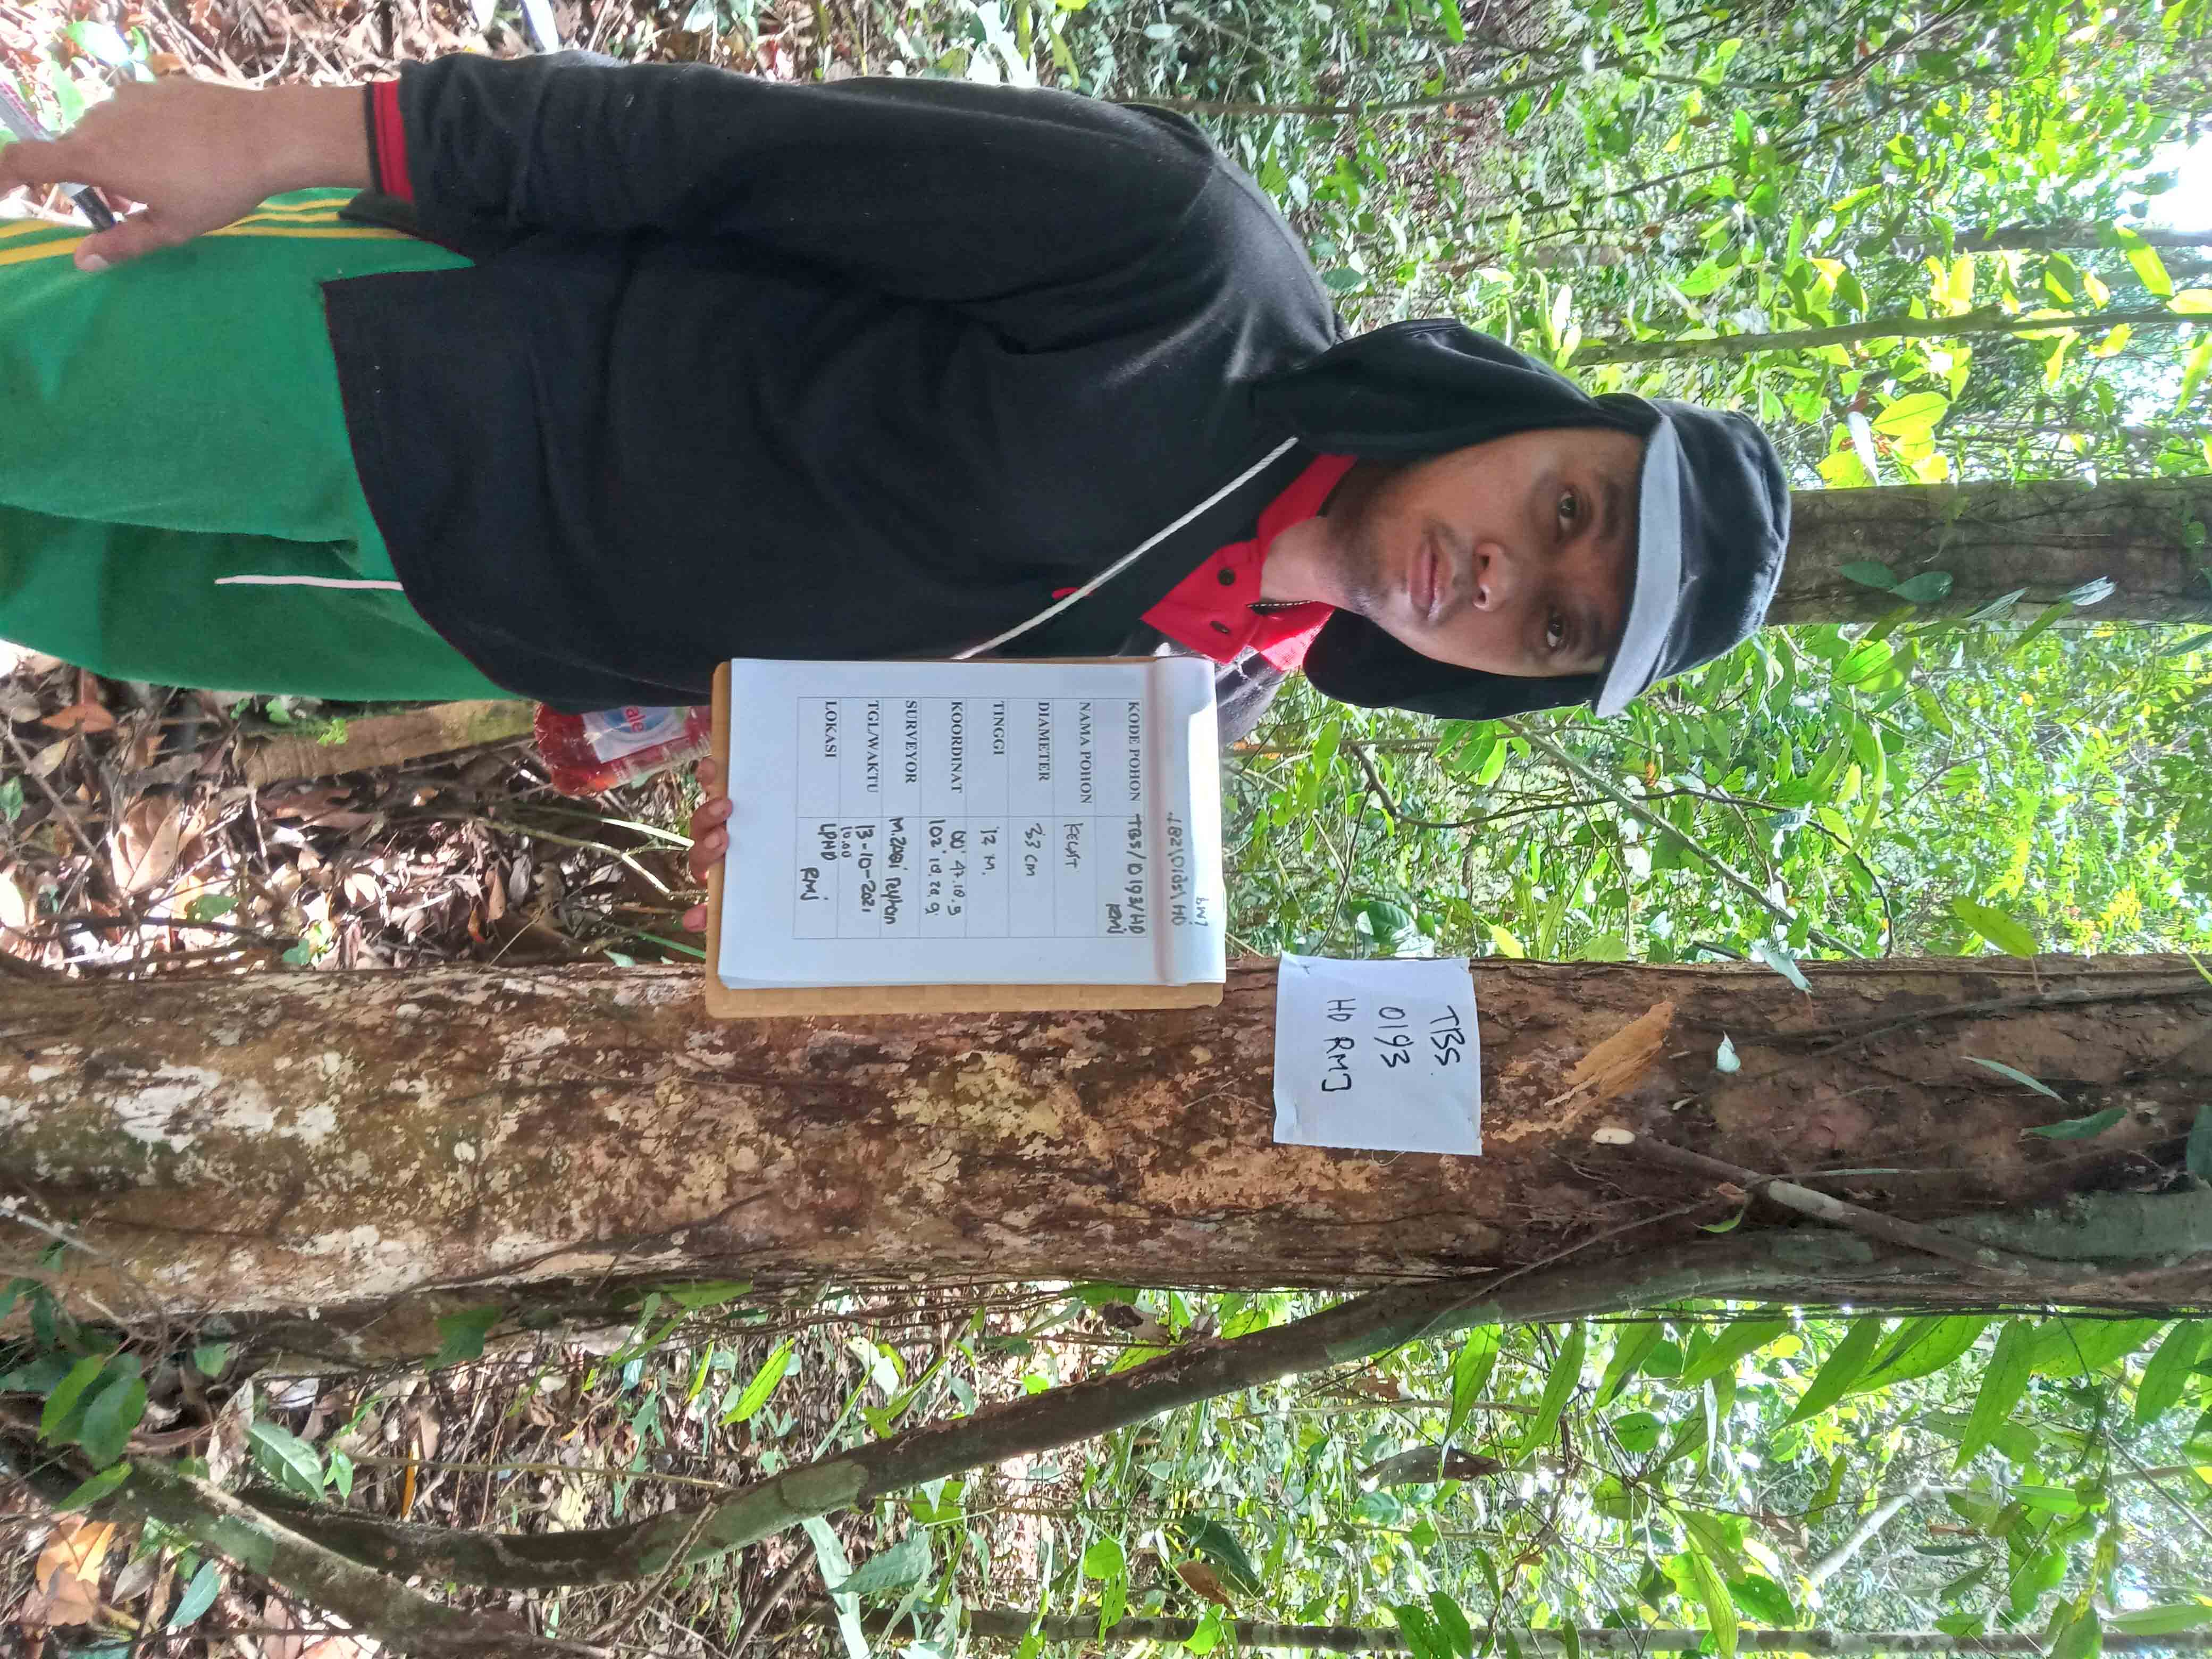 TBS
0193
HD RMJ
KODE POHON TBS/0193/HD
RMJ
NAMA POHON KELAT
DIAMETER 33 cm
TINGGI 12 M.
KOORDINAT 00° 47.18.9
102° 18.28.9
SURVEYOR M.ZAQI Reyhan
TGL/WAKTU 13-10-2021
10.00
LOKASI LPHD
RMJ